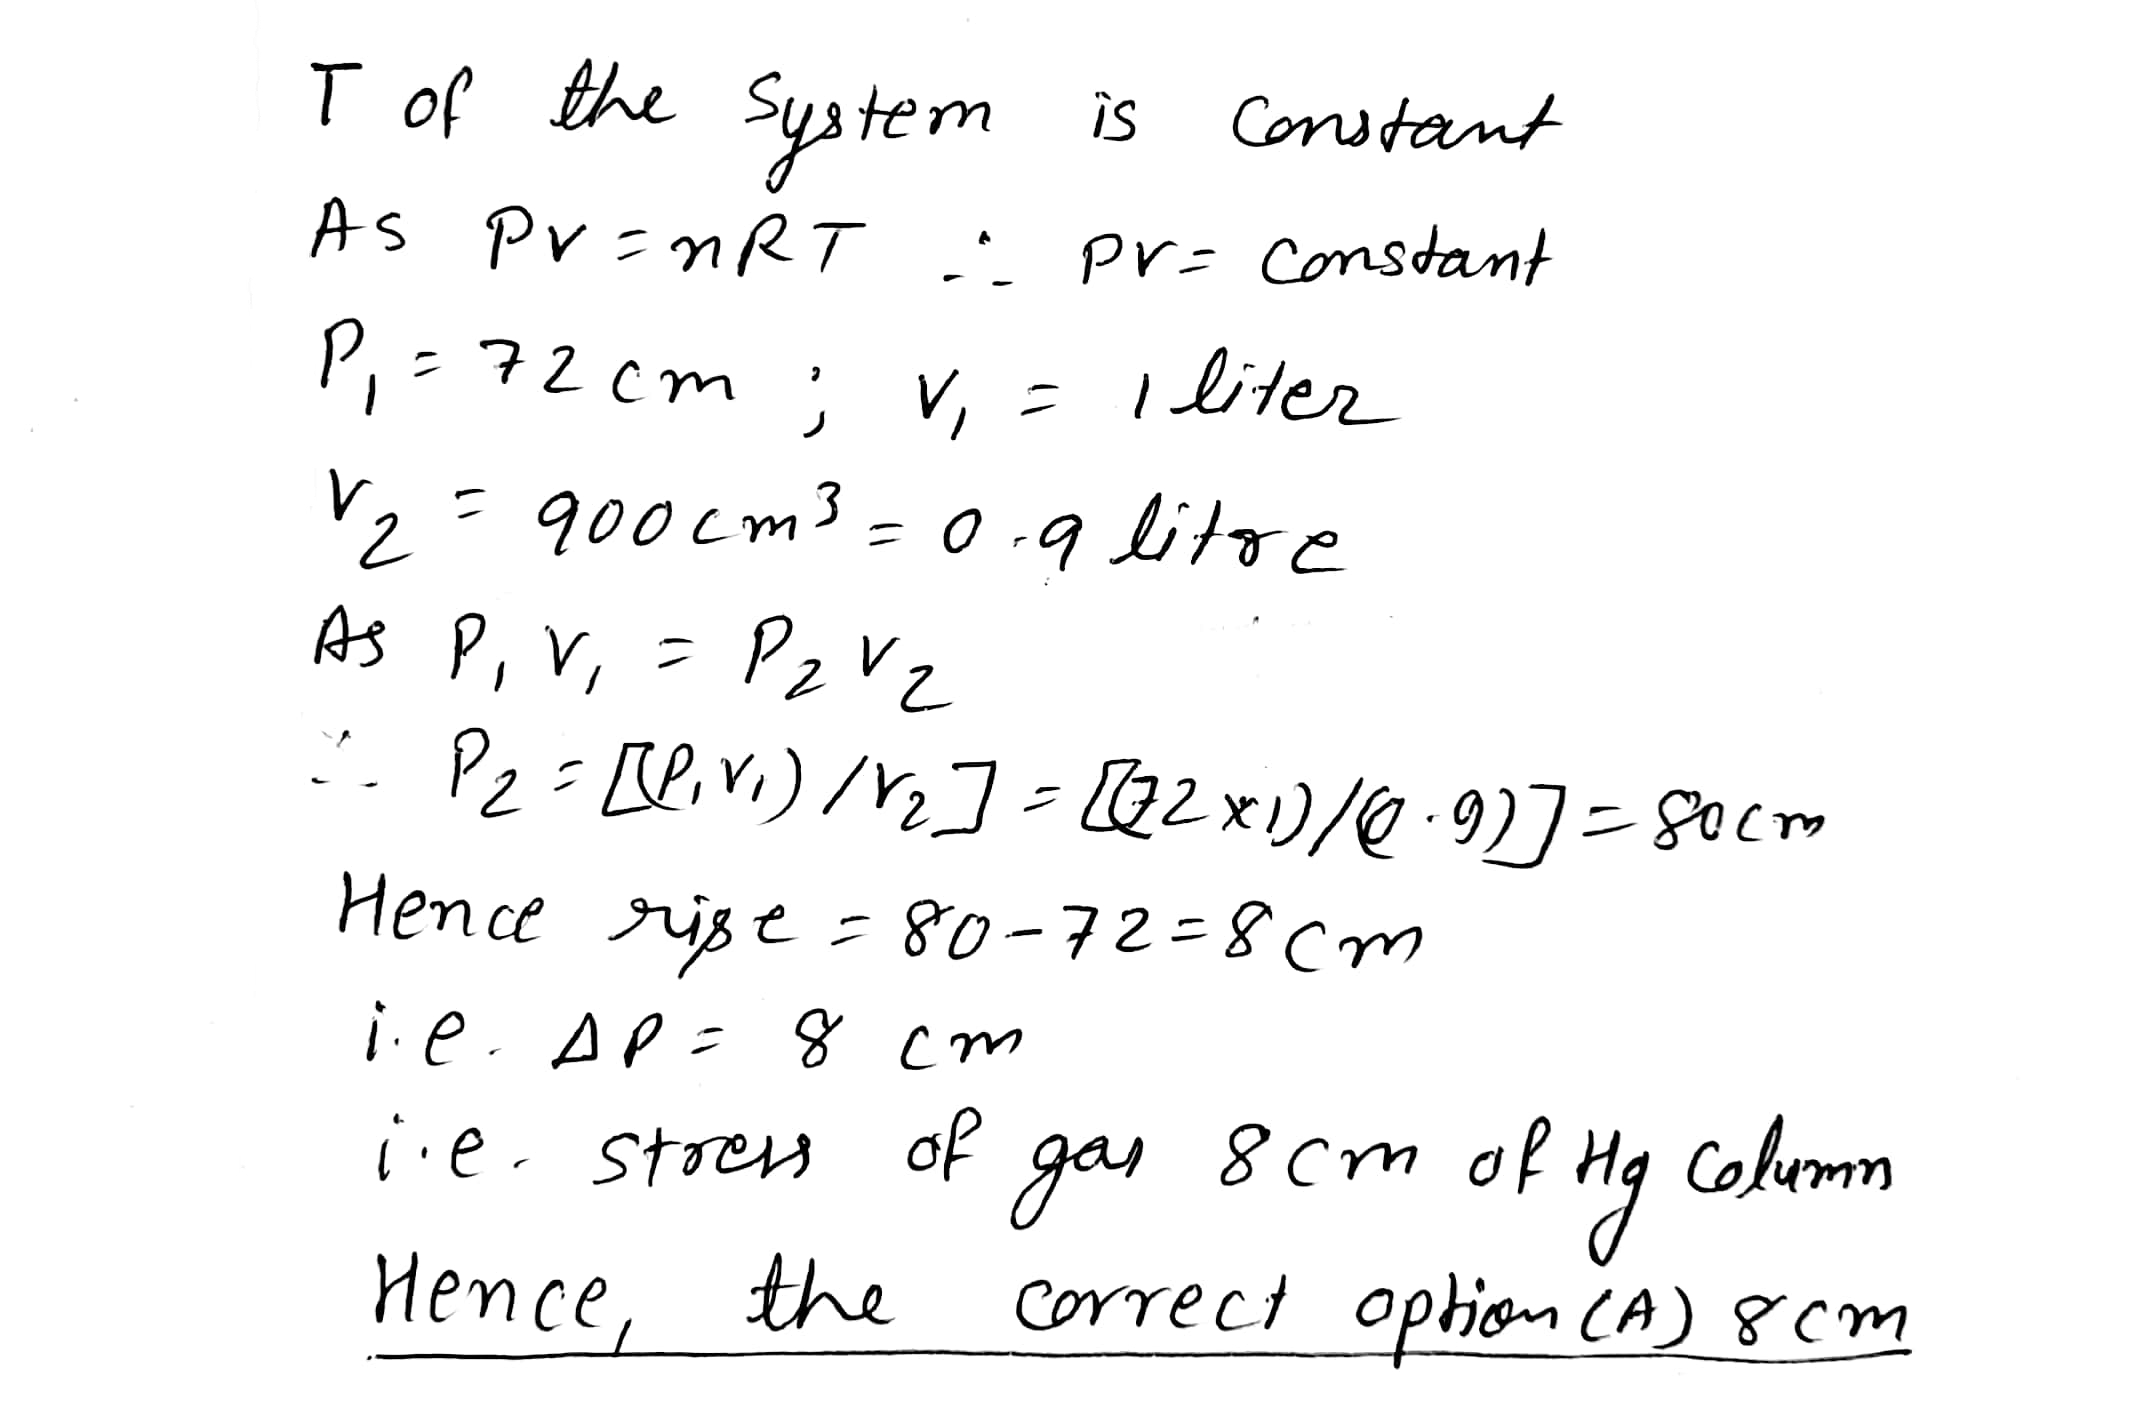 T of the system is constant
As PV = nRT ∴ PV = constant
P₁ = 72 cm ; V₁ = 1 liter
V₂ = 900 cm³ = 0.9 litre
As P₁ V₁ = P₂ V₂
∴ P₂ = [(P₁V₁) / V₂] = [(72 × 1) / (0.9)] = 80 cm
Hence rise = 80 - 72 = 8 cm
i.e. ΔP = 8 cm
i.e. stress of gas 8 cm of Hg column
Hence, the correct option (A) 8 cm